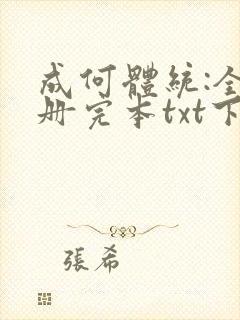 成何體統:全
册完本txt下
張希